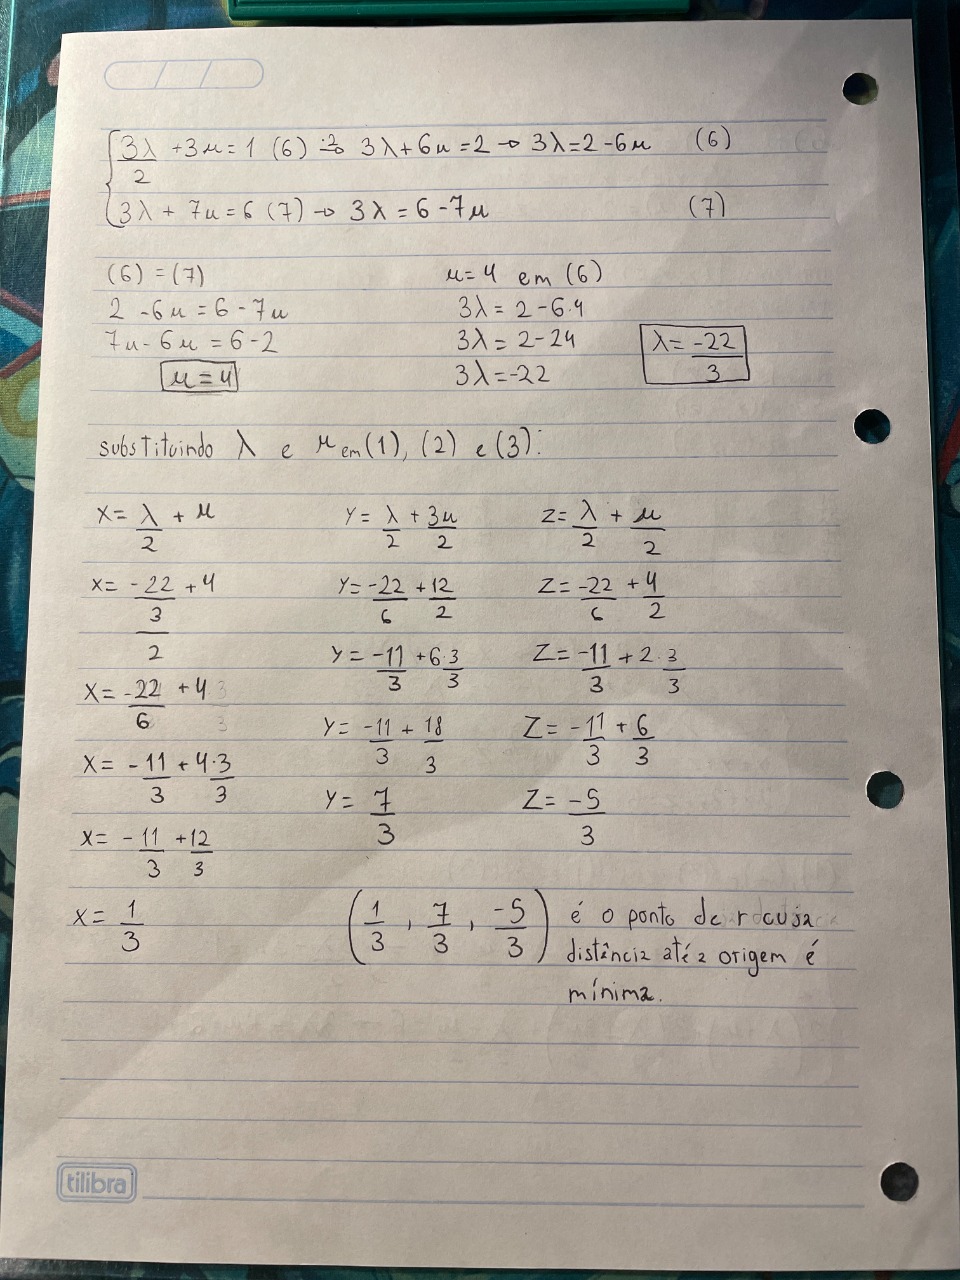 3λ/2 + 3μ = 1 (6) ·2→ 3λ + 6μ = 2 → 3λ = 2 - 6μ (6)
3λ + 7μ = 6 (7) → 3λ = 6 - 7μ (7)
(6) = (7)
2 - 6μ = 6 - 7μ
7μ - 6μ = 6 - 2
μ = 4
μ = 4 em (6)
3λ = 2 - 6·4
3λ = 2 - 24
3λ = -22
λ = -22/3
substituindo λ e μ em (1), (2) e (3):
X = λ/2 + μ
X = -22/3/2 + 4
X = -22/6 + 4
X = -11/3 + 4·3/3
X = -11/3 + 12/3
X = 1/3
Y = λ/2 + 3μ/2
Y = -22/6 + 12/2
Y = -11/3 + 6·3/3
Y = -11/3 + 18/3
Y = 7/3
Z = λ/2 + μ/2
Z = -22/6 + 4/2
Z = -11/3 + 2·3/3
Z = -11/3 + 6/3
Z = -5/3
(1/3, 7/3, -5/3) é o ponto de r cuja
distância até a origem é
mínima.
tilibra